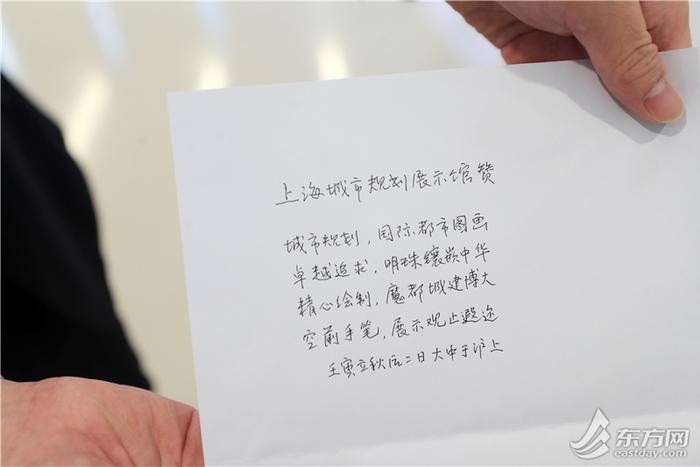 上海城市规划展示馆赞
城市规划，国际都市图画
卓越追求，明珠镶嵌中华
精心绘制，魔都城建博大
空前手笔，展示观止遐迩
壬寅立秋后二日大中于沪上
东方网
eastday.com